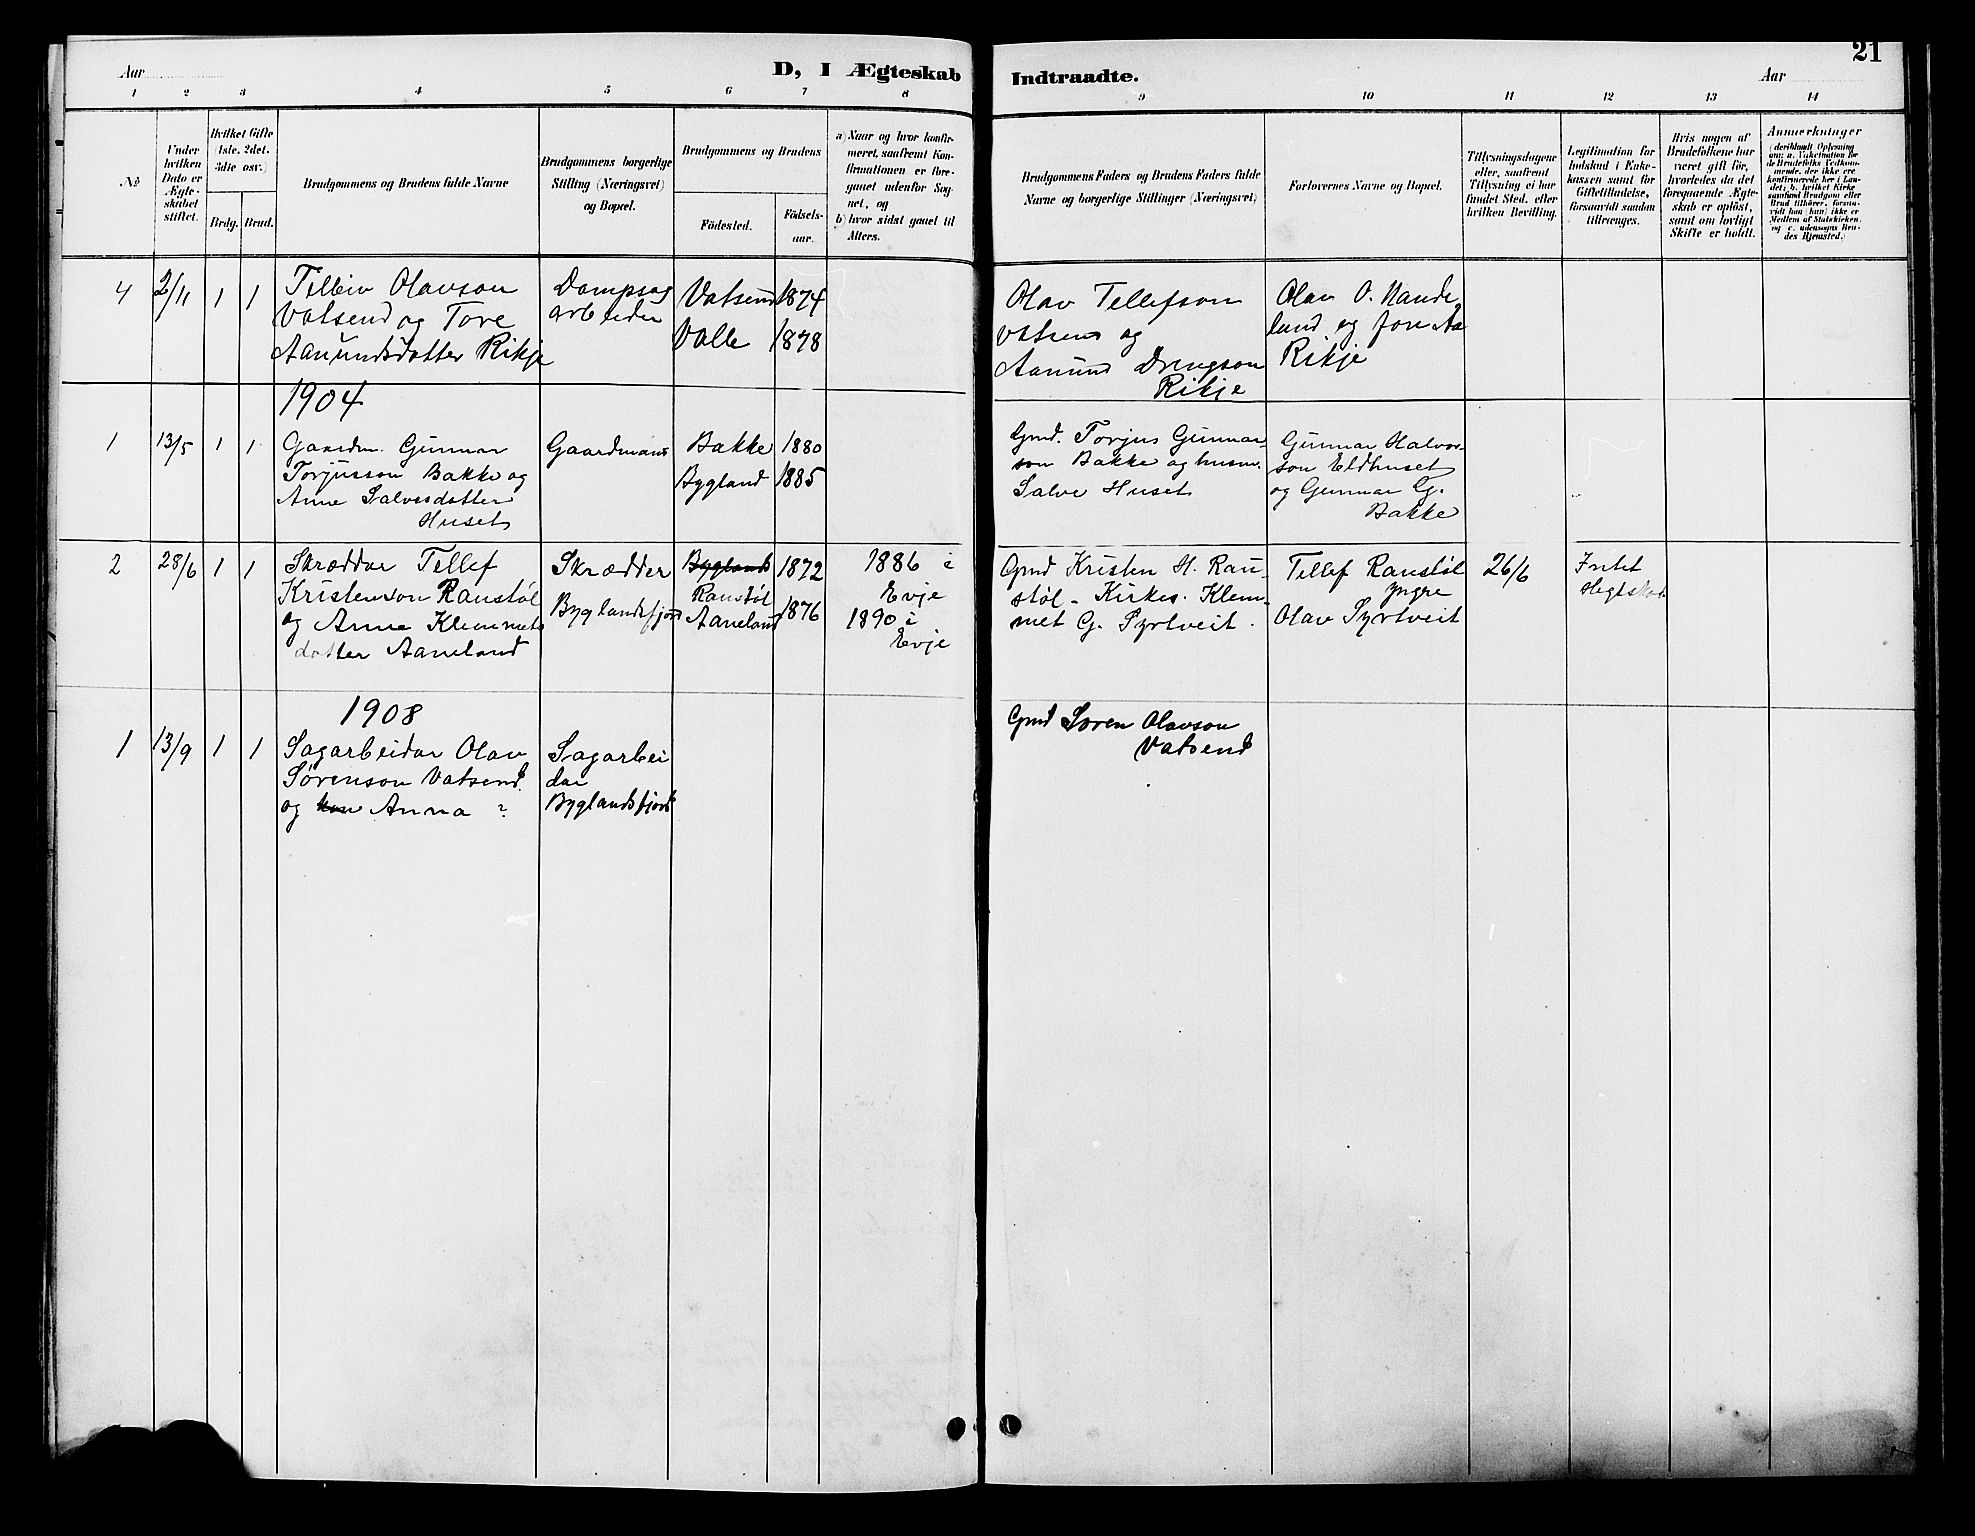 21
Aar
D, I Ægteskab
Indtraadte.
Aar
1 2 3 4 5 6 7 8 9 10 11 12 13 14
No
Under hvilken Dato er Ægteskabet stiftet.
Hvilket Gifte (1ste, 2det, 3die osv.)
Brdg. Brud.
Brudgommens og Brudens fulde Navne
Brudgommens borgerlige Stilling (Næringsvei) og Bopæl.
Brudgommens og Brudens
Födested.
Födselsaar.
a) Naar og hvor konfirmeret, saafremt Konfirmationen er foregaaet udenfor Sognet, og
b) hvor sidst gaaet til Alters.
Brudgommens Faders og Brudens Faders fulde Navne og borgerlige Stillinger (Næringsvei)
Forlovernes Navne og Bopæl.
Tillysningsdagene eller, saafremt Tillysning ei har fundet Sted, efter hvilken Bevilling.
Legitimation for Indskud i Enkekassen samt for Giftetilladelse, forsaavidt saadan tiltrænges.
Hvis nogen af Brudefolkene har været gift för, hvorledes da det foregaaende Ægteskab er oplöst, samt om lovligt Skifte er holdt.
Anmerkninger (deriblandt Oplysning om: a. Vakcination for de Brudefolks Vedkommende, der ikke ere konfirmerede her i Landet; b. hvilket Kirkesamfund Brudgom eller Brud tilhörer, forsaavidt han (hun) ikke er Medlem af Statskirken, og c. udensogns Brudes Hjemsted.)
4 2/11 1 1
Telleiv Olavson
Vatsend og Tore
Aanundsdotter Rikje
Dampsag
arbeider
Vatsend 1874
Valle 1878
Olav Tellefson
Vatsend og
Aanund Drengson
Rikje
Olav O.
land og
Rikje
1904
1 13/5 1 1
Gaardm. Gunnar
Torjusson Bakke og
Anne Salvesdotter
Huset
Gaardmand
Bakke 1880
Bygland 1885
Gmd. Torjus Gunnar-
son Bakke og husm.
Salve Huset
Gunnar Halvor-
son Eldhuset
og Gunnar G.
Bakke
2 28/6 1 1
Skræddar Tellef
Kristenson Raustøl
og Anne Klemmets
dotter Aaneland
Skrædder
Byglandsfjord
Bygland
Raustøl 1872
Aaneland 1876
1886 i
Evje
1890 i
Evje
Gmd Kristen H. Rau-
støl - Kirkes. Klem-
met G. Syrtveit.
Tellef Raustøl
yngre
Olav Syrtveit
26/6
Intet
1908
1 13/9 1 1
Sagarbeidar Olav
Sørenson Vatsend
og Anna ?
Sagarbei
dar
Byglandsfjord
Gmd Søren Olavson
Vatsend